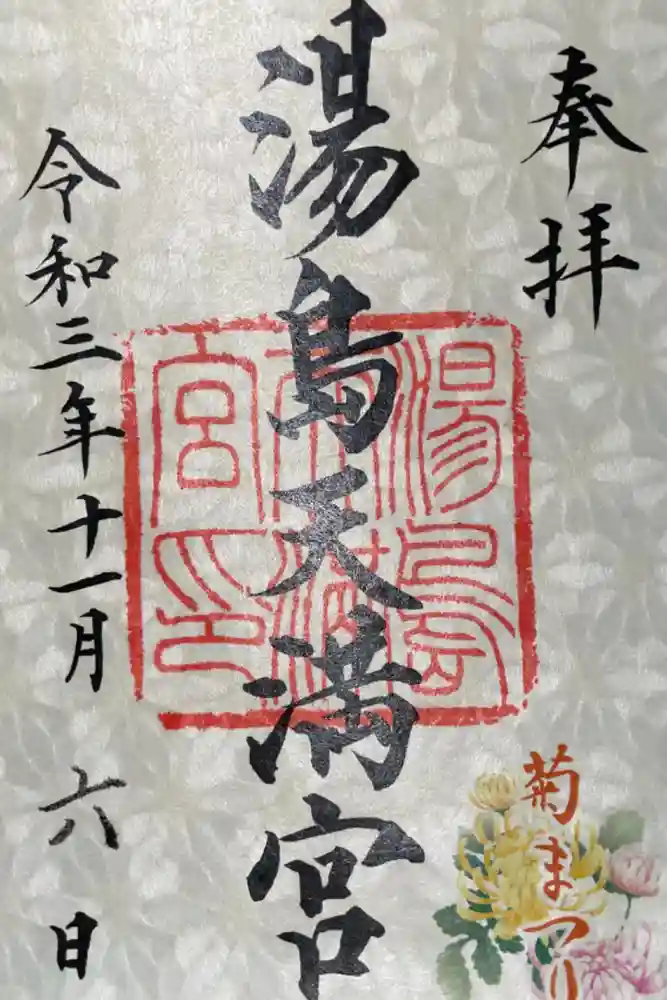 奉拝
湯島天満宮
湯島天満宮印
令和三年十一月六日
菊まつり